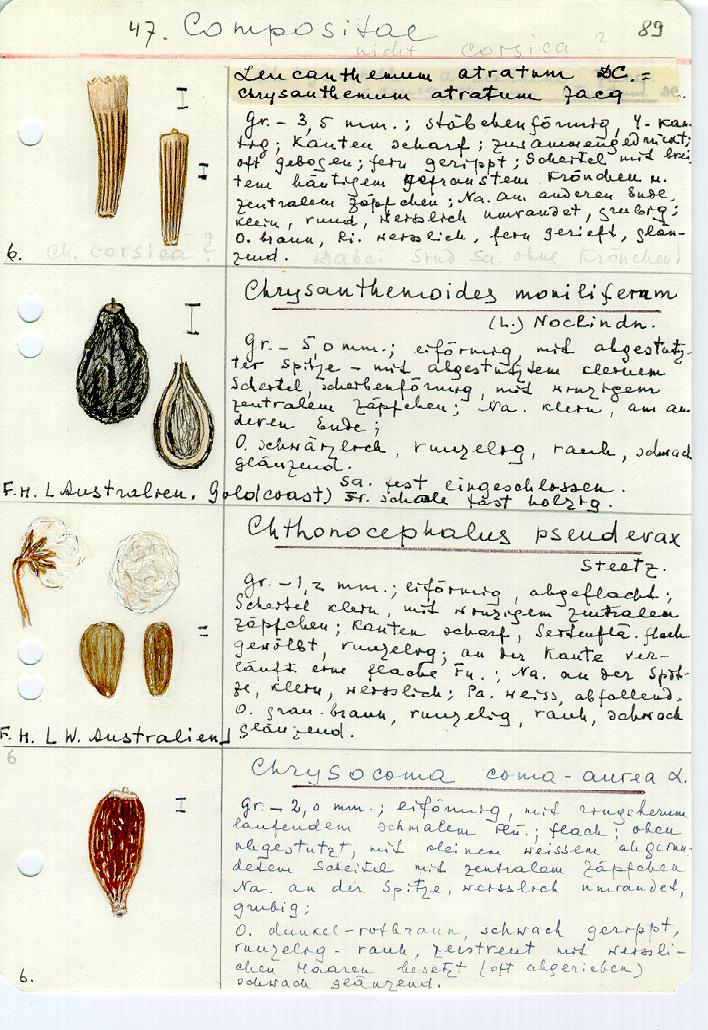 47. Compositae 89
nicht corsica ?
Leucanthemum atratum DC. =
Chrysanthemum atratum Jacq
Gr. - 3,5 mm.; stäbchenförmig, 4-kan-
tig; Kanten scharf; zusammengedrückt;
oft gebogen; fein gerippt; Scheitel mit brei-
tem häutigem gefranstem Krönchen u.
zentralem Zäpfchen; Na. am anderen Ende,
klein, rund, weisslich umrandet, grubig;
O. braun, Ri. weisslich, fein gerieft, glän-
zend. Dabei sind Sa. ohne Krönchen!
6. Ch. corsica ?
Chrysanthemoides moniliferam
(L.) Norlindn.
Gr. - 5,0 mm.; eiförmig, mit abgestutz-
ter Spitze - mit abgestutztem kleinem
Scheitel, scheibenförmig, mit winzigem
zentralem Zäpfchen; Na. klein, am an
deren Ende;
O. schwärzlich, runzelig, rauh, schwach
glänzend.
Sa. fest eingeschlossen.
F.H.L Australien. Goldcoast) Fr. schale fast holzig.
Chthonocephalus pseudevax
Steetz.
Gr. - 1,2 mm.; eiförmig, abgeflacht;
Scheitel klein, mit winzigem zentralem
Zäpfchen; Kanten scharf, Seitenflä. flach
gewölbt, runzelig; an der Kante ver-
läuft eine flache Fu.; Na. an der Spit-
ze, klein, weisslich; Pa. weiss, abfallend.
O. grau-braun, runzelig, rauh, schwach
glänzend.
F.H. L W. Australien)
6
Chrysocoma coma-aurea L.
Gr. - 2,0 mm.; eiförmig, mit ringsherum
laufendem schmalem Flü.; flach; oben
abgestutzt, mit kleinem weissem abgerun-
detem Scheitel mit zentralem Zäpfchen
Na. an der Spitze, weisslich umrandet,
grubig;
O. dunkel-rotbraun, schwach gerippt,
runzelig-rauh, zerstreut mit weissli-
chen Haaren besetzt (oft abgerieben)
schwach glänzend.
6.